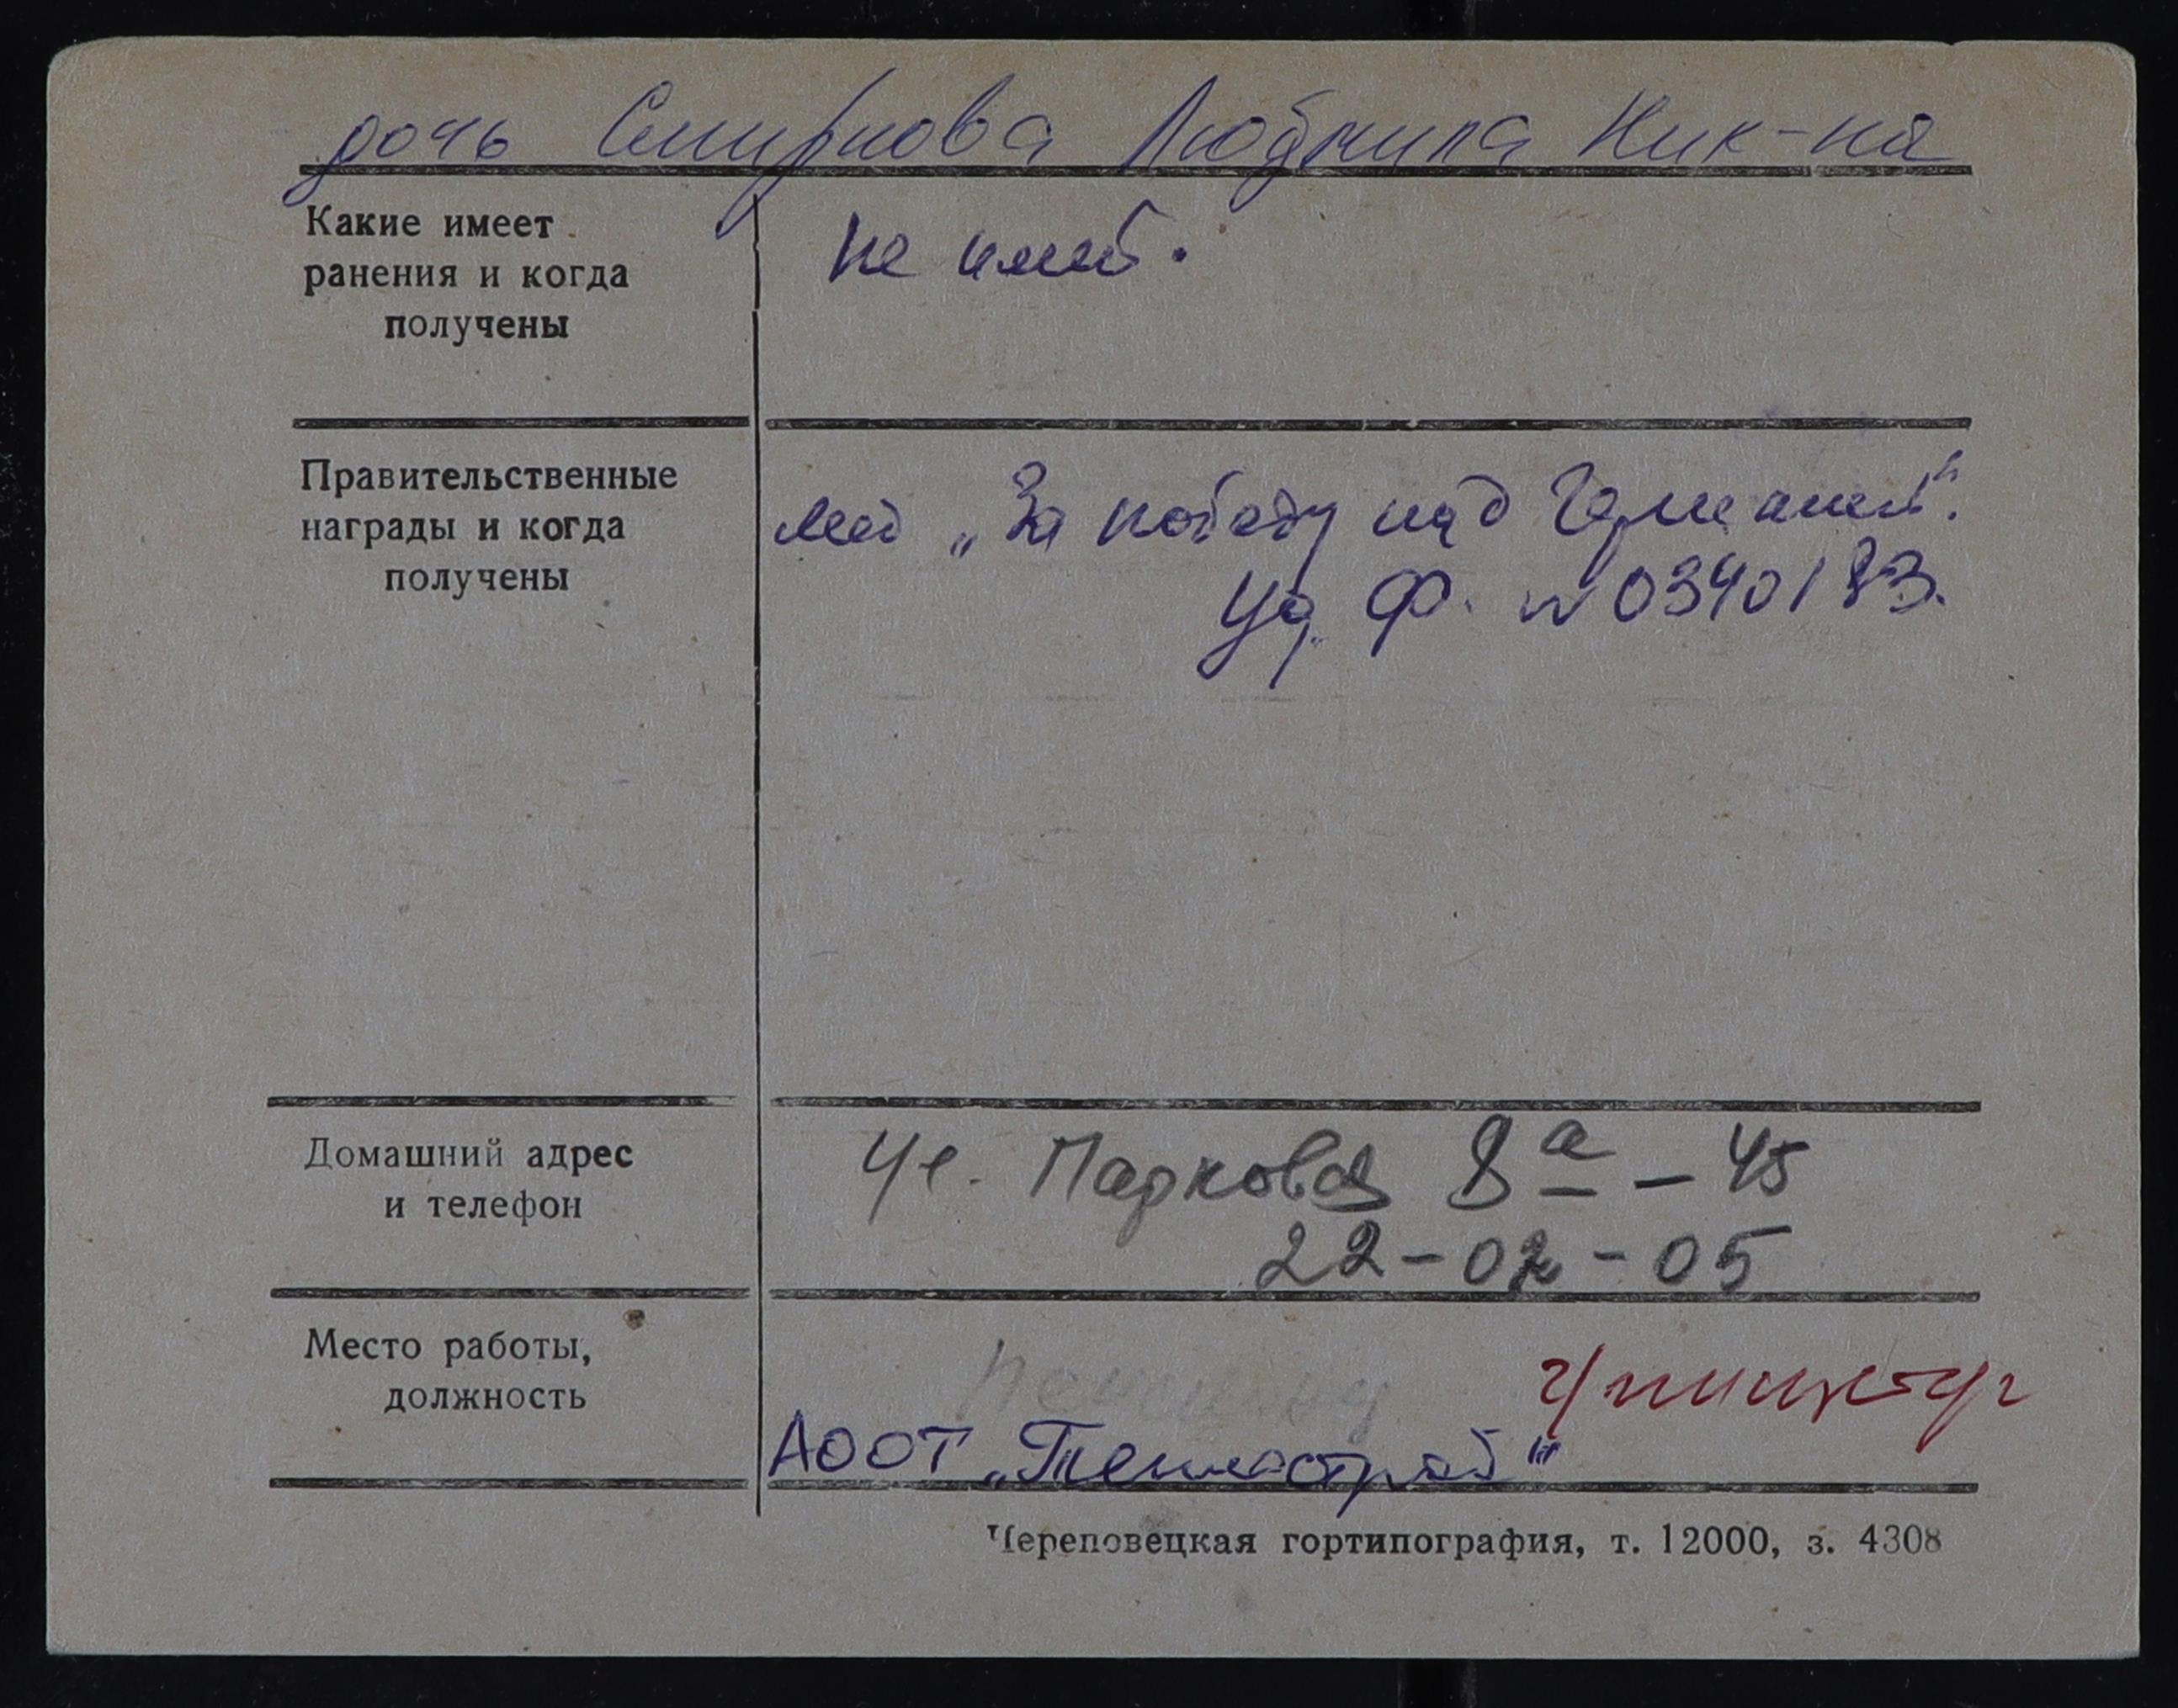 дочь Смирнова Людмила Ник-на
Какие имеет
ранения и когда
получены
не имеет.
Правительственные
награды и когда
получены
мед „За победу над Германией".
Уд. Ф. № 0340183.
Домашний адрес
и телефон
Ул. Парковая 8а – 45
22-02-05
Место работы,
должность
АООТ „Теплострой"
Череповецкая гортипография, т. 12000, з. 4308